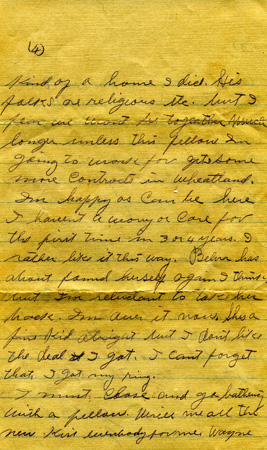 (4)
Kind of a home I did. His
folks are religious etc. but I
fear we wont be together much
longer unless this fellow Im
going to work for gets some
more contracts in Wheatland.
I'm happy as can be here
I havent a worry or care for
the first time in 3 or 4 years. I
rather like it this way.
has
about found herself again I think
but I'm reluctant to take her
back. I'm over it now. Shes a
fine kid alright but I dont like
the deal I got. I cant forget
that. I got my ring.
I must close and go bathing
with a fellow. Write me all the
new Kiss everybody for me Wayne